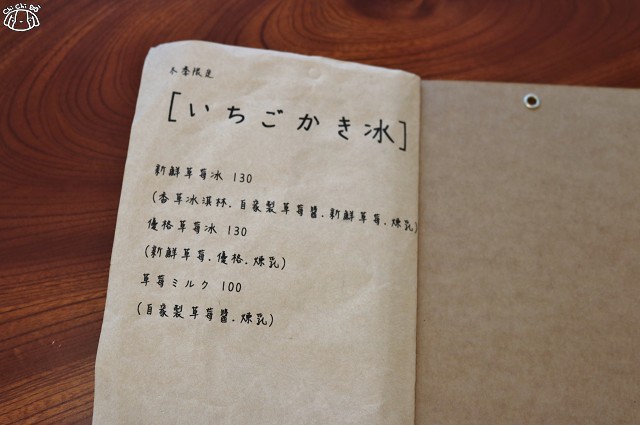 Chi Chi Bo
冬季限定
[いちごかき冰]
新鮮草莓冰 130
(香草冰淇林.自家製草莓醬.新鮮草莓.煉乳)
優格草莓冰 130
(新鮮草莓.優格.煉乳)
草莓ミルク 100
(自家製草莓醬.煉乳)